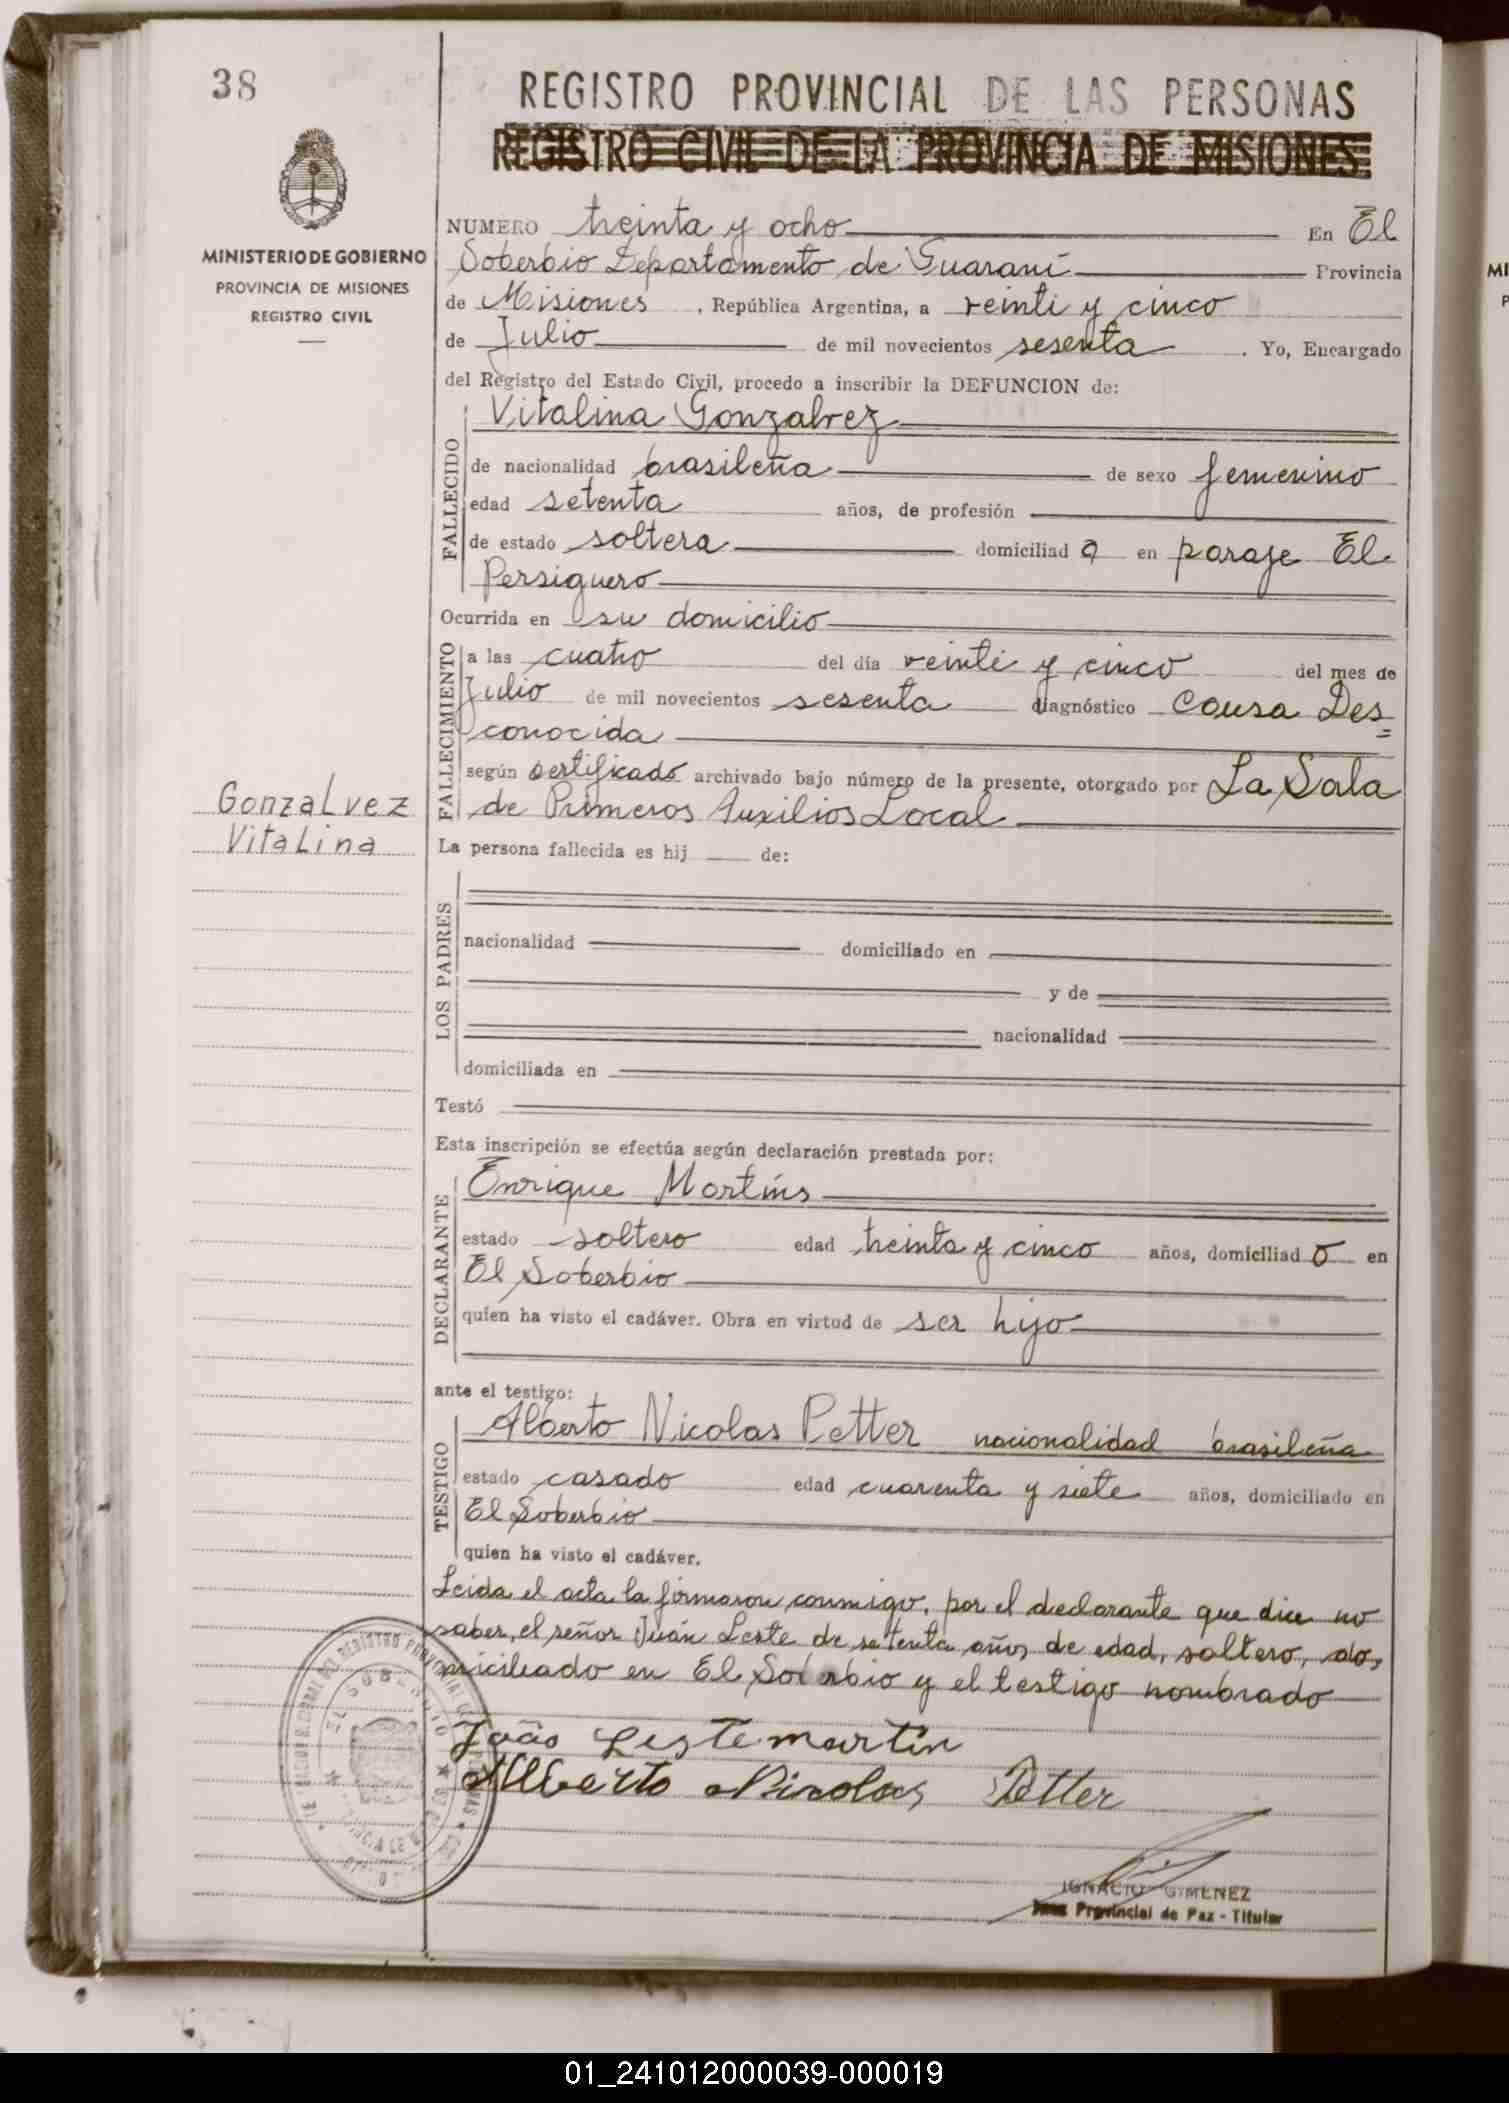 38
REGISTRO PROVINCIAL DE LAS PERSONAS
REGISTRO CIVIL DE LA PROVINCIA DE MISIONES
MINISTERIO DE GOBIERNO
PROVINCIA DE MISIONES
REGISTRO CIVIL
NUMERO treinta y ocho En El
Soberbio Departamento de Guaraní Provincia
de Misiones, República Argentina, a veinti y cinco
de Julio de mil novecientos sesenta. Yo, Encargado
del Registro del Estado Civil, procedo a inscribir la DEFUNCION de:
FALLECIDO
Vitalina Gonzalvez
de nacionalidad brasileña de sexo femenino
edad setenta años, de profesión
de estado soltera domiciliad a en paraje El
Persiguero
Ocurrida en su domicilio
FALLECIMIENTO
a las cuatro del día veinti y cinco del mes de
Julio de mil novecientos sesenta diagnóstico Causa Des=
conocida
según certificado archivado bajo número de la presente, otorgado por La Sala
de Primeros Auxilios Local
Gonzalvez
Vitalina
La persona fallecida es hij de:
LOS PADRES
nacionalidad domiciliado en
y de
nacionalidad
domiciliada en
Testó
Esta inscripción se efectúa según declaración prestada por:
DECLARANTE
Enrique Martins
estado soltero edad treinta y cinco años, domiciliad o en
El Soberbio
quien ha visto el cadáver. Obra en virtud de ser hijo
ante el testigo:
TESTIGO
Alberto Nicolas Petter nacionalidad brasileña
estado casado edad cuarenta y siete años, domiciliado en
El Soberbio
quien ha visto el cadáver.
Leida el acta la firmaron conmigo, por el declarante que dice no
saber, el señor Juán Leste de setenta años de edad, soltero, do,
miciliado en El Soberbio y el testigo nombrado
João Leste martin
Alberto Nicolas Petter
IGNACIO GIMENEZ
Juez Provincial de Paz - Titular
EL SOBERBIO
01_241012000039-000019